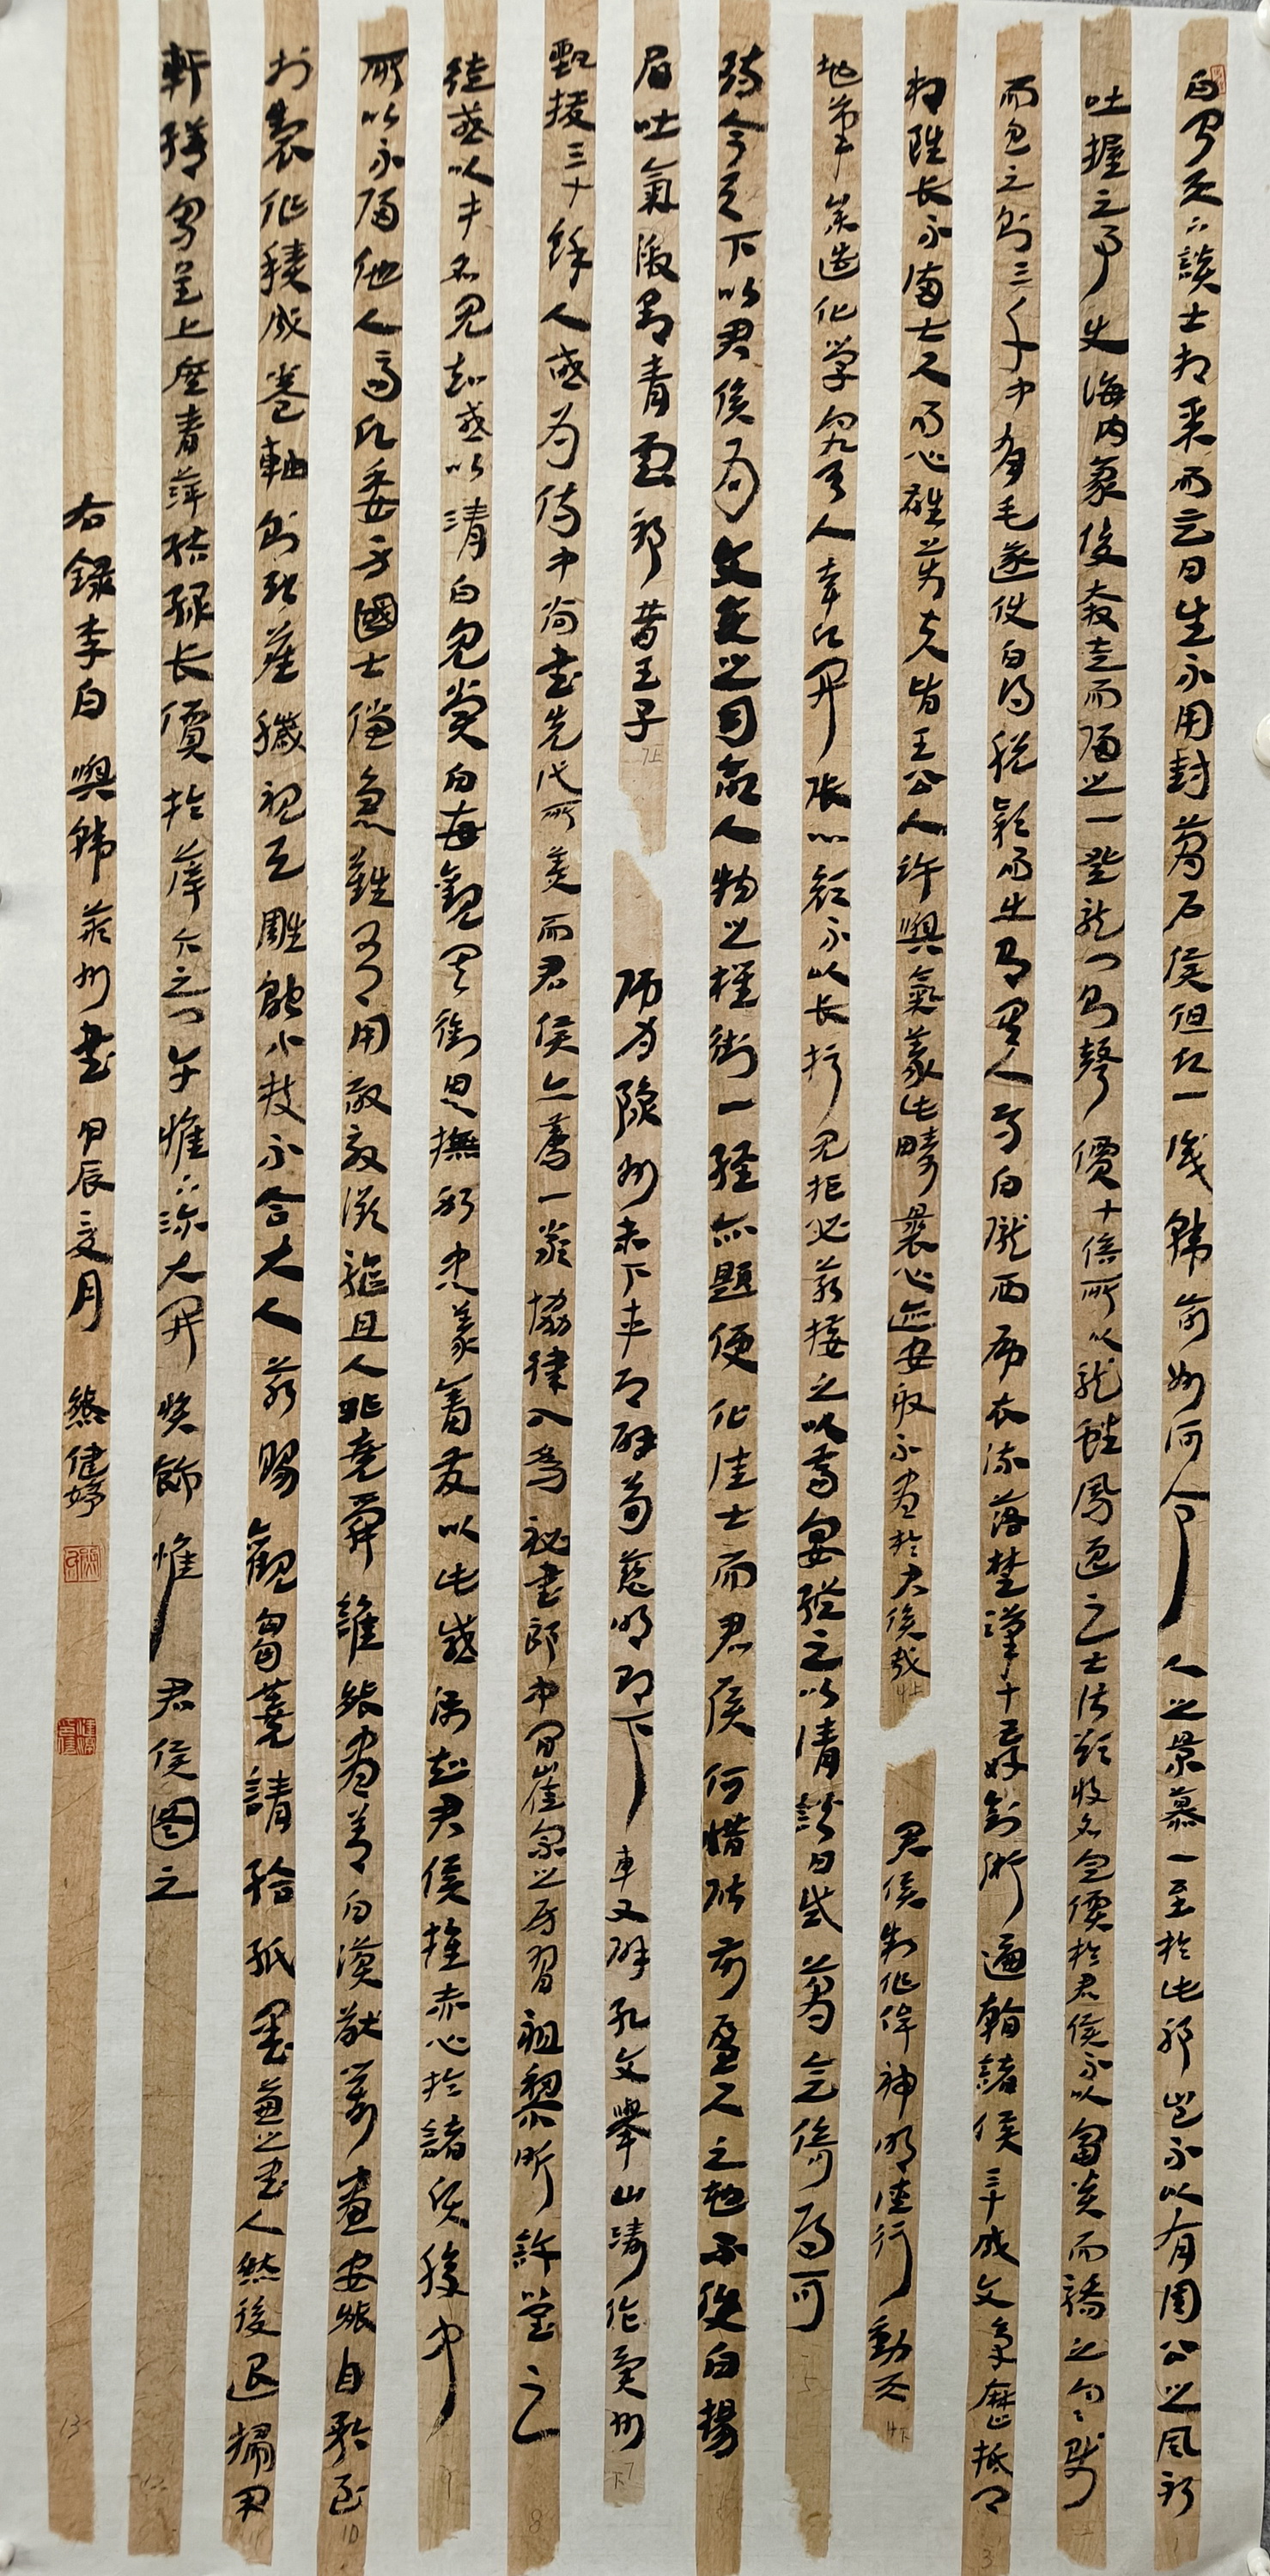 白聞天下談士相聚而言曰生不用封萬戶侯但願一識韓荊州何令人之景慕一至於此耶豈不以有周公之風躬
吐握之事使海內豪俊奔走而歸之一登龍門則聲價十倍所以龍蟠鳳逸之士皆欲收名定價於君侯不以富貴而驕之寒賤
而忽之則三千中有毛遂使白得脫穎而出即其人焉白隴西布衣流落楚漢十五好劍術遍翰諸侯三十成文章歷抵卿
相雖長不滿七尺而心雄萬夫皆王公人許與氣義此疇曩心跡安敢不盡於君侯哉
君侯制作侔神明德行動天
地筆參造化學究天人幸願開張心顏不以長揖見拒必若接之以高宴縱之以清談日試萬言倚馬可
待今天下以君侯為文章之司命人物之權衡一經品題便作佳士而君侯何惜階前盈尺之地不使白揚
眉吐氣激昂青雲耶昔王子
師為豫州未下車即辟荀慈明既下車又辟孔文舉山濤作冀州
甄拔三十餘人或為侍中尚書先代所美而君侯亦薦一嚴協律入為秘書郎中間崔宗之房習祖黎昕許瑩之
徒或以才名見知或以清白見賞白每觀其銜恩撫躬忠義奮發以此感激知君侯推赤心於諸賢腹中
所以不歸他人而願委身國士倘急難有用敢效微軀且人非堯舜誰能盡善白謨猷籌畫安能自矜至
於製作積成卷軸則欲塵穢視聽雕蟲小技不合大人若賜觀芻蕘請給紙墨兼之書人然後退掃閑
軒繕寫呈上庶青萍結綠長價於薛卞之門幸惟下流大開獎飾惟君侯圖之
右錄李白與韓荊州書 甲辰夏月 熊健婷